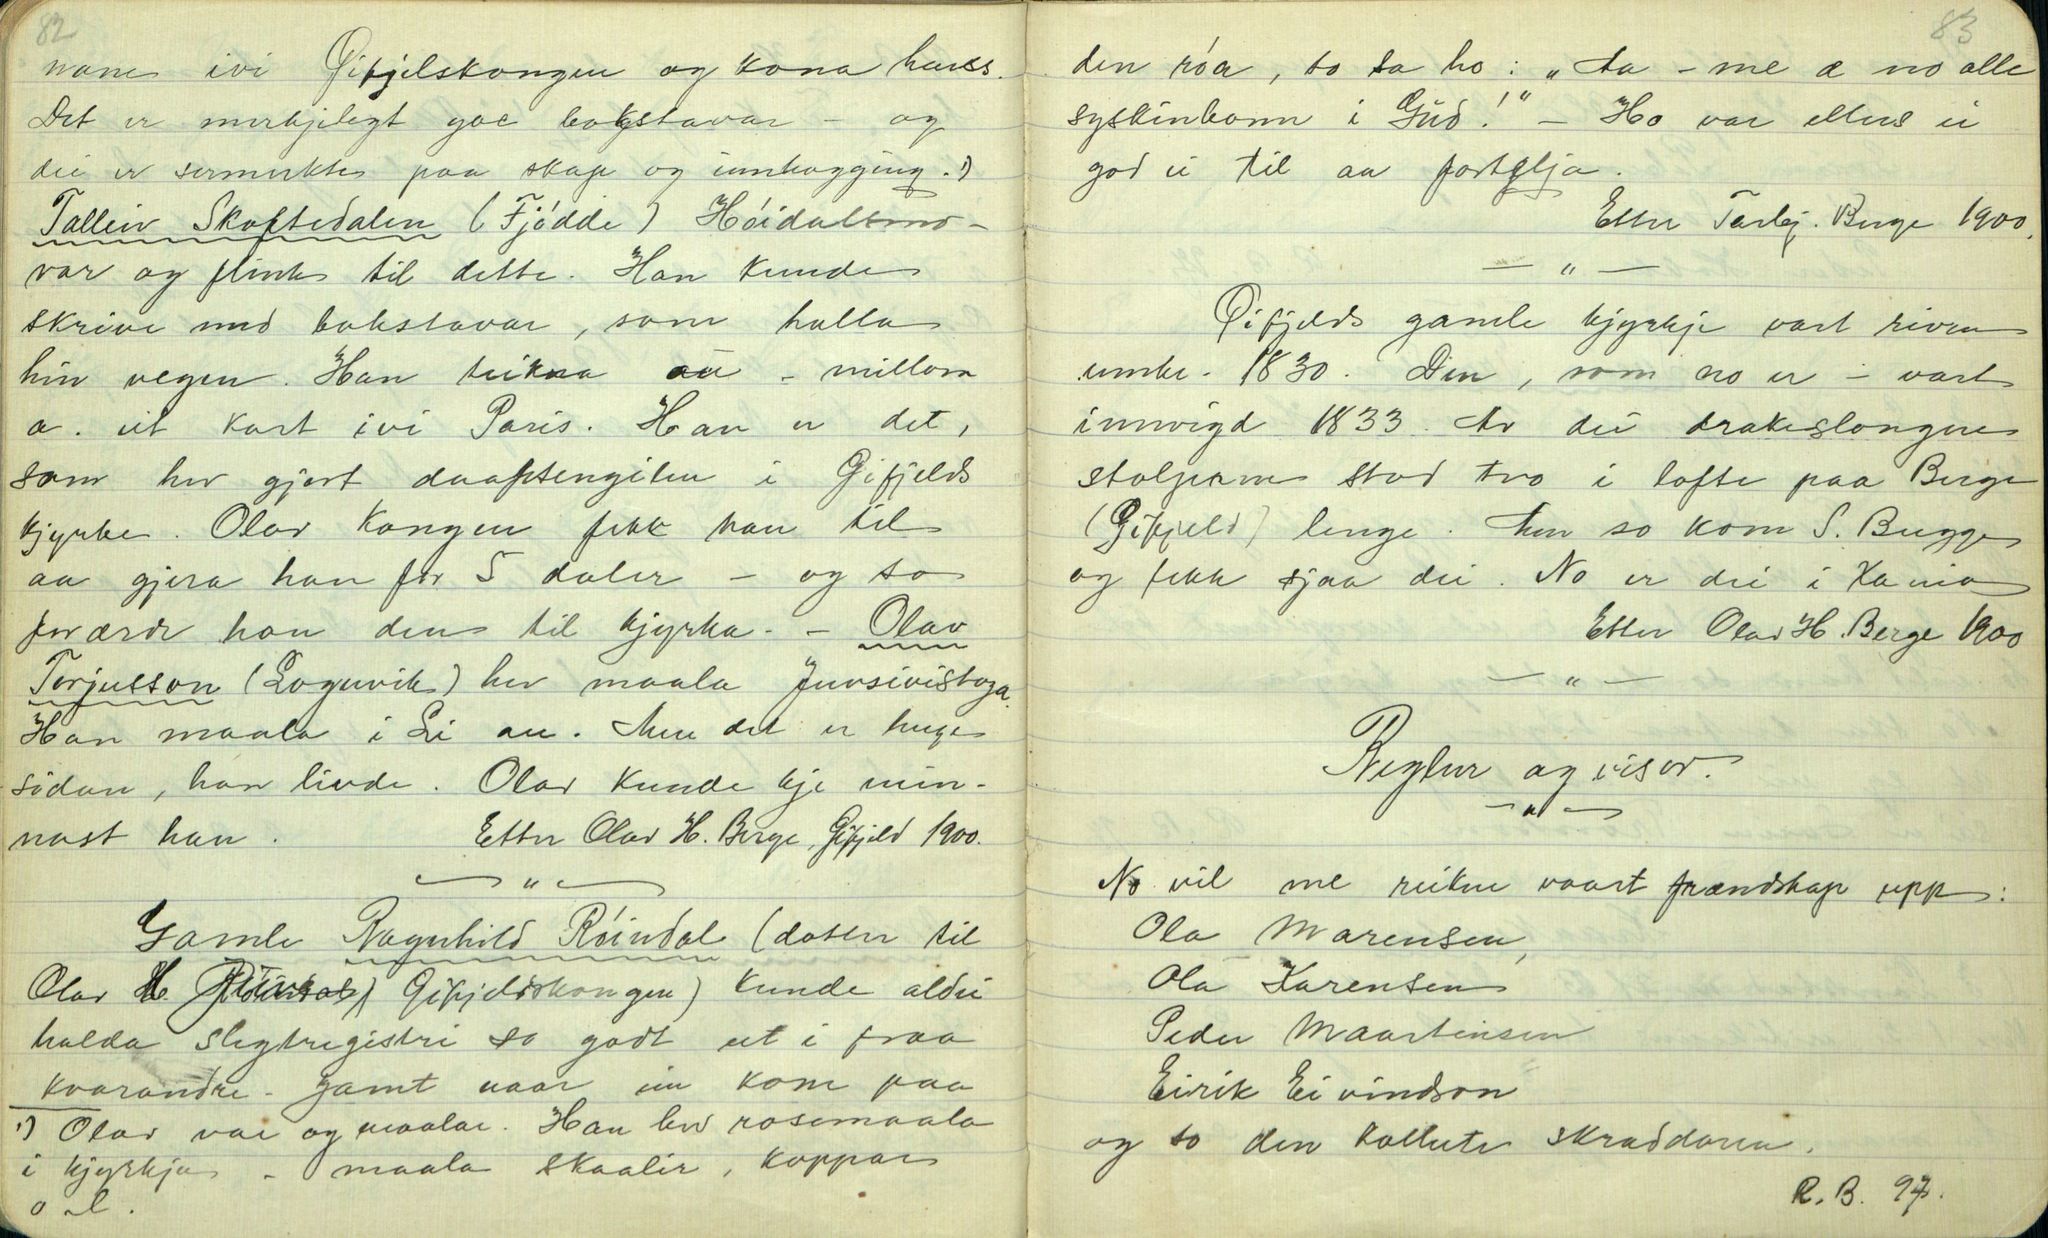 82
namn ivi Gifjelskongen og kona hass.
Det er merkjelegt goe bokstavar – og
dei er sermerkte paa skap og innhogging. 1)
Talleiv Skoftedalen (Fjódde) Hóidalsmo –
var og flink til dette. Han kunde
skrive med bokstavar, som halla
hin vegen. Han teikna au – millom
a. eit kart ivi Paris. Han er det,
som hev gjort daapsengilen i Gifjelds
kjyrke. Olav Kongen fekk han til
aa gjera han for 5 daler – og so
forærde han den til kjyrka. – Olav
Terjusson (Loguvik) hev maala Jursivistoga.
Han maala i Li au. Men det er lenge
sidan, han livde. Olav kunde kje min-
nast han.
Etter Olav H. Berge, Gifjeld 1900.
– " –
Gamle Ragnhild Róindal (dotter til
Olav Gifjeldskongen) kunde aldri
halda slegtregistri so godt ut i fraa
kvarandre. Jamt naar im kom paa
1) Olav var og maalar. Han hev rosemaala
i kjyrkja – maala skaalir, koppar
o l.
83
den róa, so sa ho: „Aa – me æ no alle
syskinbonn i Gud!" – Ho var ellers ei
god ei til aa fortelja.
Etter Torbj. Berge 1900.
– " –
Gifjelds gamle kjyrkje vart riven
umkr. 1830. Den, som no er – vart
innvigd 1833. Av dei drakeslongne
stolpanne stod tvo i lofte paa Berge
(Gifjeld) lenge. Men so kom S. Bugge
og fekk sjaa dei. No er dei i Xania
Etter Olav H. Berge 1900
– " –
Reglur og visor.
– " –
No vil me reikne vaart frændskap upp:
Ola Marensen,
Ola Karensen
Peder Maartensen
Eirik Eivindson
og so den kollute skraddaren.
R. B. 97.